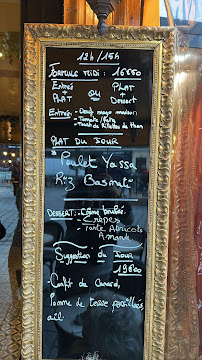 12h / 15h
Formule midi : 16€60
Entrée + Plat ou Plat + Dessert
Entrée : - Oeuf mayo maison
- Tomate / Feta
- Toast de Rillettes de Thon
Plat du Jour
Poulet Yassa
Riz Basmati
Dessert : - Crème brulée
- Crêpes
- Tarte Abricots
Amande
Suggestion du Jour
19€00
- Confit de Canard,
Pomme de terre persillées
ail.